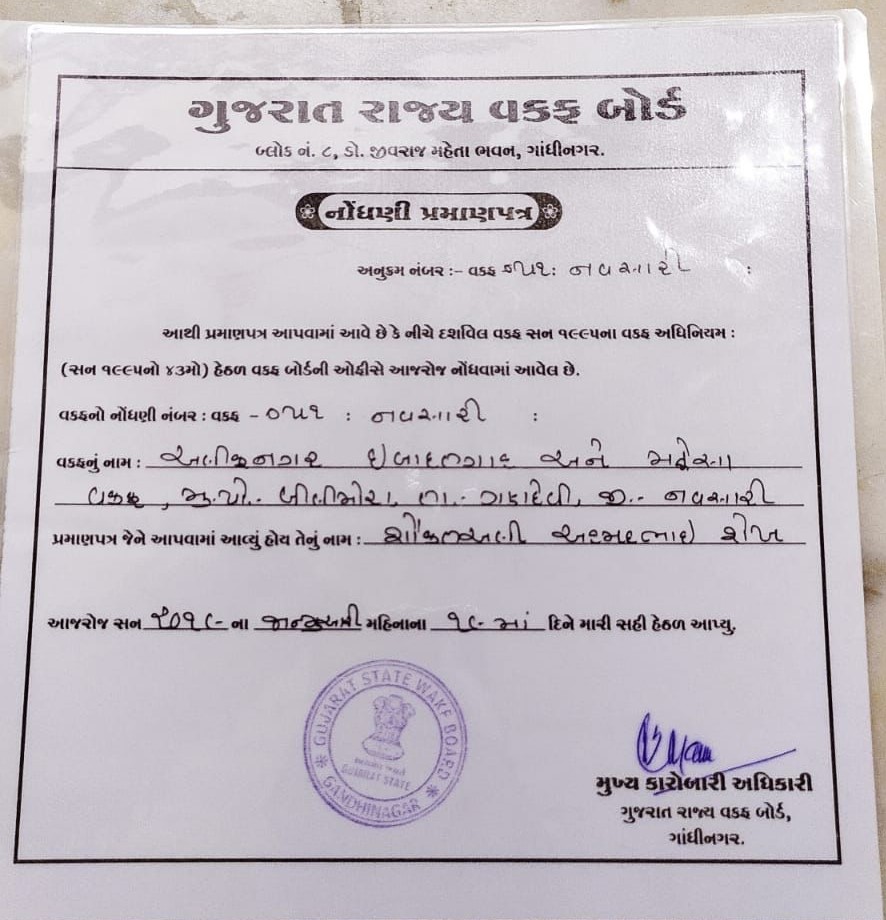 ગુજરાત રાજ્ય વકફ બોર્ડ
બ્લોક નં. ૮, ડો. જીવરાજ મહેતા ભવન, ગાંધીનગર.
નોંધણી પ્રમાણપત્ર
અનુક્રમ નંબર :- વકફ ૦૫૧: નવસારી :
આથી પ્રમાણપત્ર આપવામાં આવે છે કે નીચે દર્શાવેલ વકફ સન ૧૯૯૫ના વકફ અધિનિયમ :
(સન ૧૯૯૫નો ૪૩મો) હેઠળ વકફ બોર્ડની ઓફીસે આજરોજ નોંધવામાં આવેલ છે.
વકફનો નોંધણી નંબર : વકફ - ૦૫૧ : નવસારી :
વકફનું નામ : અલીફનગર ઇબાદતગાહ અને મદ્રેસા
વકફ, મુ.પો.- બીલીમોરા, તા.- ગણદેવી, જી.- નવસારી
પ્રમાણપત્ર જેને આપવામાં આવ્યું હોય તેનું નામ : શૌકતઅલી અહમદભાઇ શેખ
આજરોજ સન ૨૦૧૯ ના જાન્યુઆરી મહિનાના ૧૯ માં દિને મારી સહી હેઠળ આપ્યુ.
GUJARAT STATE WAKF BOARD
GUJARAT STATE
GANDHINAGAR
મુખ્ય કારોબારી અધિકારી
ગુજરાત રાજ્ય વકફ બોર્ડ,
ગાંધીનગર.